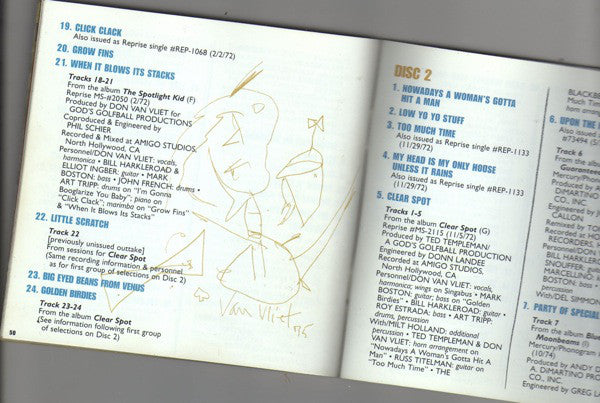 19. CLICK CLACK
Also issued as Reprise single #REP-1068 (2/2/72)
20. GROW FINS
21. WHEN IT BLOWS ITS STACKS
Tracks 18-21
From the album The Spotlight Kid (F)
Reprise MS-#2050 (2/72)
Produced by DON VAN VLIET for
GOD'S GOLFBALL PRODUCTIONS
Coproduced & Engineered by
PHIL SCHIER
Recorded & Mixed at AMIGO STUDIOS,
North Hollywood, CA
Personnel/DON VAN VLIET: vocals,
harmonica • BILL HARKLEROAD &
ELLIOT INGBER: guitar • MARK
BOSTON: bass • JOHN FRENCH: drums •
ART TRIPP: drums on "I'm Gonna
Booglarize You Baby"; piano on
"Click Clack"; marimba on "Grow Fins"
& "When It Blows Its Stacks"
22. LITTLE SCRATCH
Track 22
[previously unissued outtake]
From sessions for Clear Spot
(Same recording information & personnel
as for first group of selections on Disc 2)
23. BIG EYED BEANS FROM VENUS
24. GOLDEN BIRDIES
Track 23-24
From the album Clear Spot
(See information following first group
of selections on Disc 2)
50
Van Vliet
DISC 2
1. NOWADAYS A WOMAN'S GOTTA
HIT A MAN
2. LOW YO YO STUFF
3. TOO MUCH TIME
Also issued as Reprise single #REP-1133
(11/29/72)
4. MY HEAD IS MY ONLY HOUSE
UNLESS IT RAINS
Also issued as Reprise single #REP-1133
(11/29/72)
5. CLEAR SPOT
Tracks 1-5
From the album Clear Spot (G)
Reprise #MS-2115 (11/5/72)
Produced by TED TEMPLEMAN/
A GOD'S GOLFBALL PRODUCTION
Engineered by DONN LANDEE
Recorded at AMIGO STUDIOS,
North Hollywood, CA
Personnel/DON VAN VLIET: vocals,
harmonica; wings on Singabus • MARK
BOSTON: guitar; bass on "Golden
Birdies" • BILL HARKLEROAD: guitar •
ROY ESTRADA: bass • ART TRIPP:
drums, percussion
With/MILT HOLLAND: additional
percussion • TED TEMPLEMAN & DON
VAN VLIET: horn arrangement on
"Nowadays A Woman's Gotta Hit A
Man" • RUSS TITELMAN: guitar on
"Too Much Time" • THE
BLACKBE
Much Time"
horn arrange
6. UPON THE
Also issued
#73494 (5/
Track 6
From the a
Guarantee
Mercury/Ph
Produced
A. DiMARTI
CO., INC.
Engineered
CALLON
Remixed by
Recorded at
HOLLYWOO
Personnel/DON
BILL HARKLE
ROAD
MARCELLIN
BOSTON: b
With/DEL SIMMON
7. PARTY OF SPECIAL
Track 7
From the album Blue
Moonbeams (I)
Mercury/Phonogram
(10/74)
Produced by ANDY D
A. DiMARTINO PR
CO., INC.
Engineered by GREG L